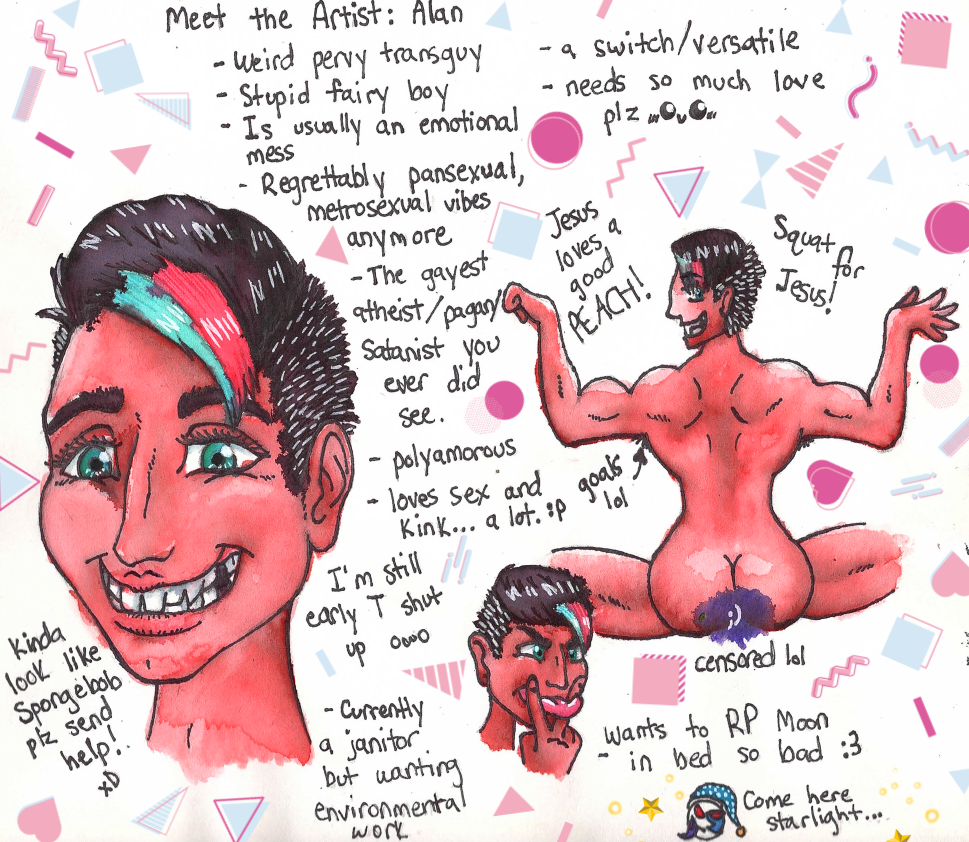 Meet the Artist: Alan
- Weird pervy transguy
- Stupid fairy boy
- Is usually an emotional
mess
- Regrettably pansexual,
metrosexual vibes
anymore
- The gayest
atheist/pagan/
Satanist you
ever did
see.
- polyamorous
- loves sex and
kink... a lot. :p
- a switch/versatile
- needs so much love
plz
Jesus
loves a
good
PEACH!
Squat
for
Jesus!
goals
lol
I'm still
early T shut
up owo
kinda
look like
Spongebob
plz send
help!.
xD
- Currently
a janitor
but wanting
environmental
work
censored lol
- wants to RP Moon
in bed so bad :3
Come here
starlight...